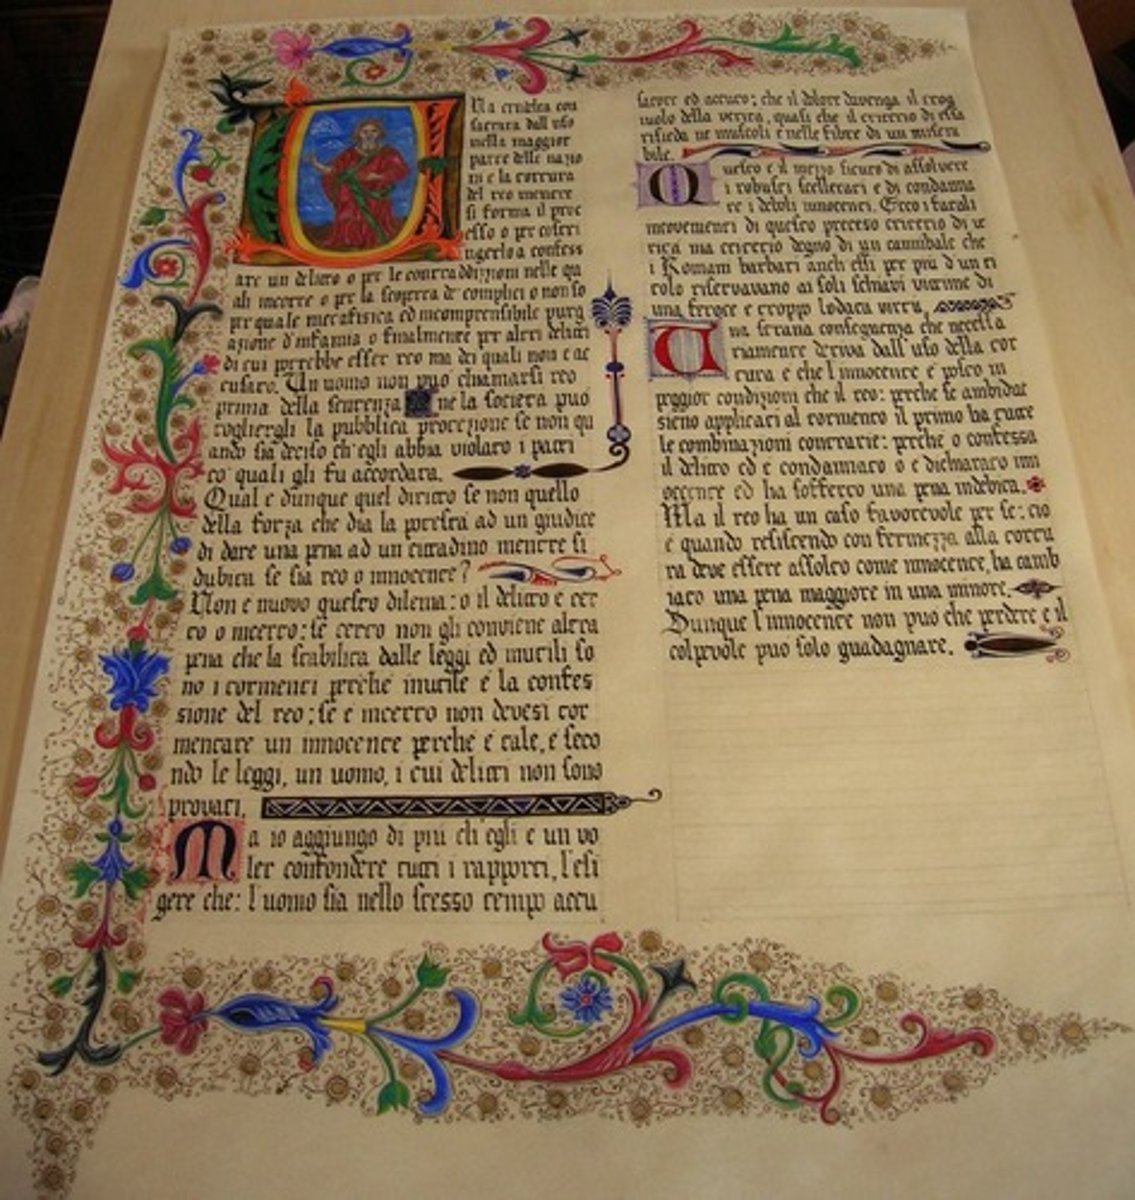 Una crudelta con
sacrata dall uso
nella maggior
parte delle nazio
ni e la tortura
del reo mentre
si forma il proc
esso o per costri
ngerlo a confess
are un delitto o per le contraddizzioni nelle qu
ali incorre o per la scoperta de complici o non so
per quale metafisica ed incomprensibile purg
azione d'infamia o finalmente per altri delitti
di cui potrebbe esser reo ma dei quali non e ac
cusato. Un uomo non può chiamarsi reo
prima della sentenza ne la società può
togliergli la pubblica protezione se non qu
ando sia deciso ch'egli abbia violato i patti
co' quali gli fu accordata.
Qual e dunque quel diritto se non quello
della forza che dia la potestà ad un giudice
di dare una pena ad un cittadino mentre si
dubita se sia reo o innocente?
Non e nuovo questo dilema: o il delitto e cer
to o incerto; se certo non gli conviene altra
pena che la stabilita dalle leggi ed inutili so
no i tormenti perchè inutile e la confes
sione del reo; se e incerto non devesi tor
mentare un innocente perche e tale, e seco
ndo le leggi, un uomo, i cui delitti non sono
provati.
Ma io aggiungo di più ch'egli e un vo
ler confondere tutti i rapporti, l'esi
gere che: l'uomo sia nello stesso tempo accu
sator ed accuso; che il dolore divenga il crog
iuolo della verita, quasi che il criterio di essa
risieda ne muscoli e nelle fibre di un misera
bile.
Questo e il mezzo sicuro di assolvere
i robusti scellerati e di condanna
re i deboli innocenti. Ecco i fatali
inconvenienti di questo preteso criterio di ve
rità ma criterio degno di un cannibale che
i Romani barbari anch essi per più d'un ti
tolo riservavano ai soli schiavi vittime di
una feroce e troppo lodata virtu.
Una strana conseguenza che necessa
riamente deriva dall'uso della tor
tura e che l'innocente e posto in
peggior condizioni che il reo: perche se ambidue
sieno applicati al tormento il primo ha tutte
le combinazioni contrarie: perche o confessa
il delitto ed e condannato o e dichiarato inn
ocente ed ha sofferto una pena indebita.
Ma il reo ha un caso favorevole per se: cio
e quando resistendo con fermezza alla tortu
ra deve essere assolto come innocente, ha camb
iato una pena maggiore in una minore.
Dunque l'innocente non può che perdere e il
colpevole può solo guadagnare.